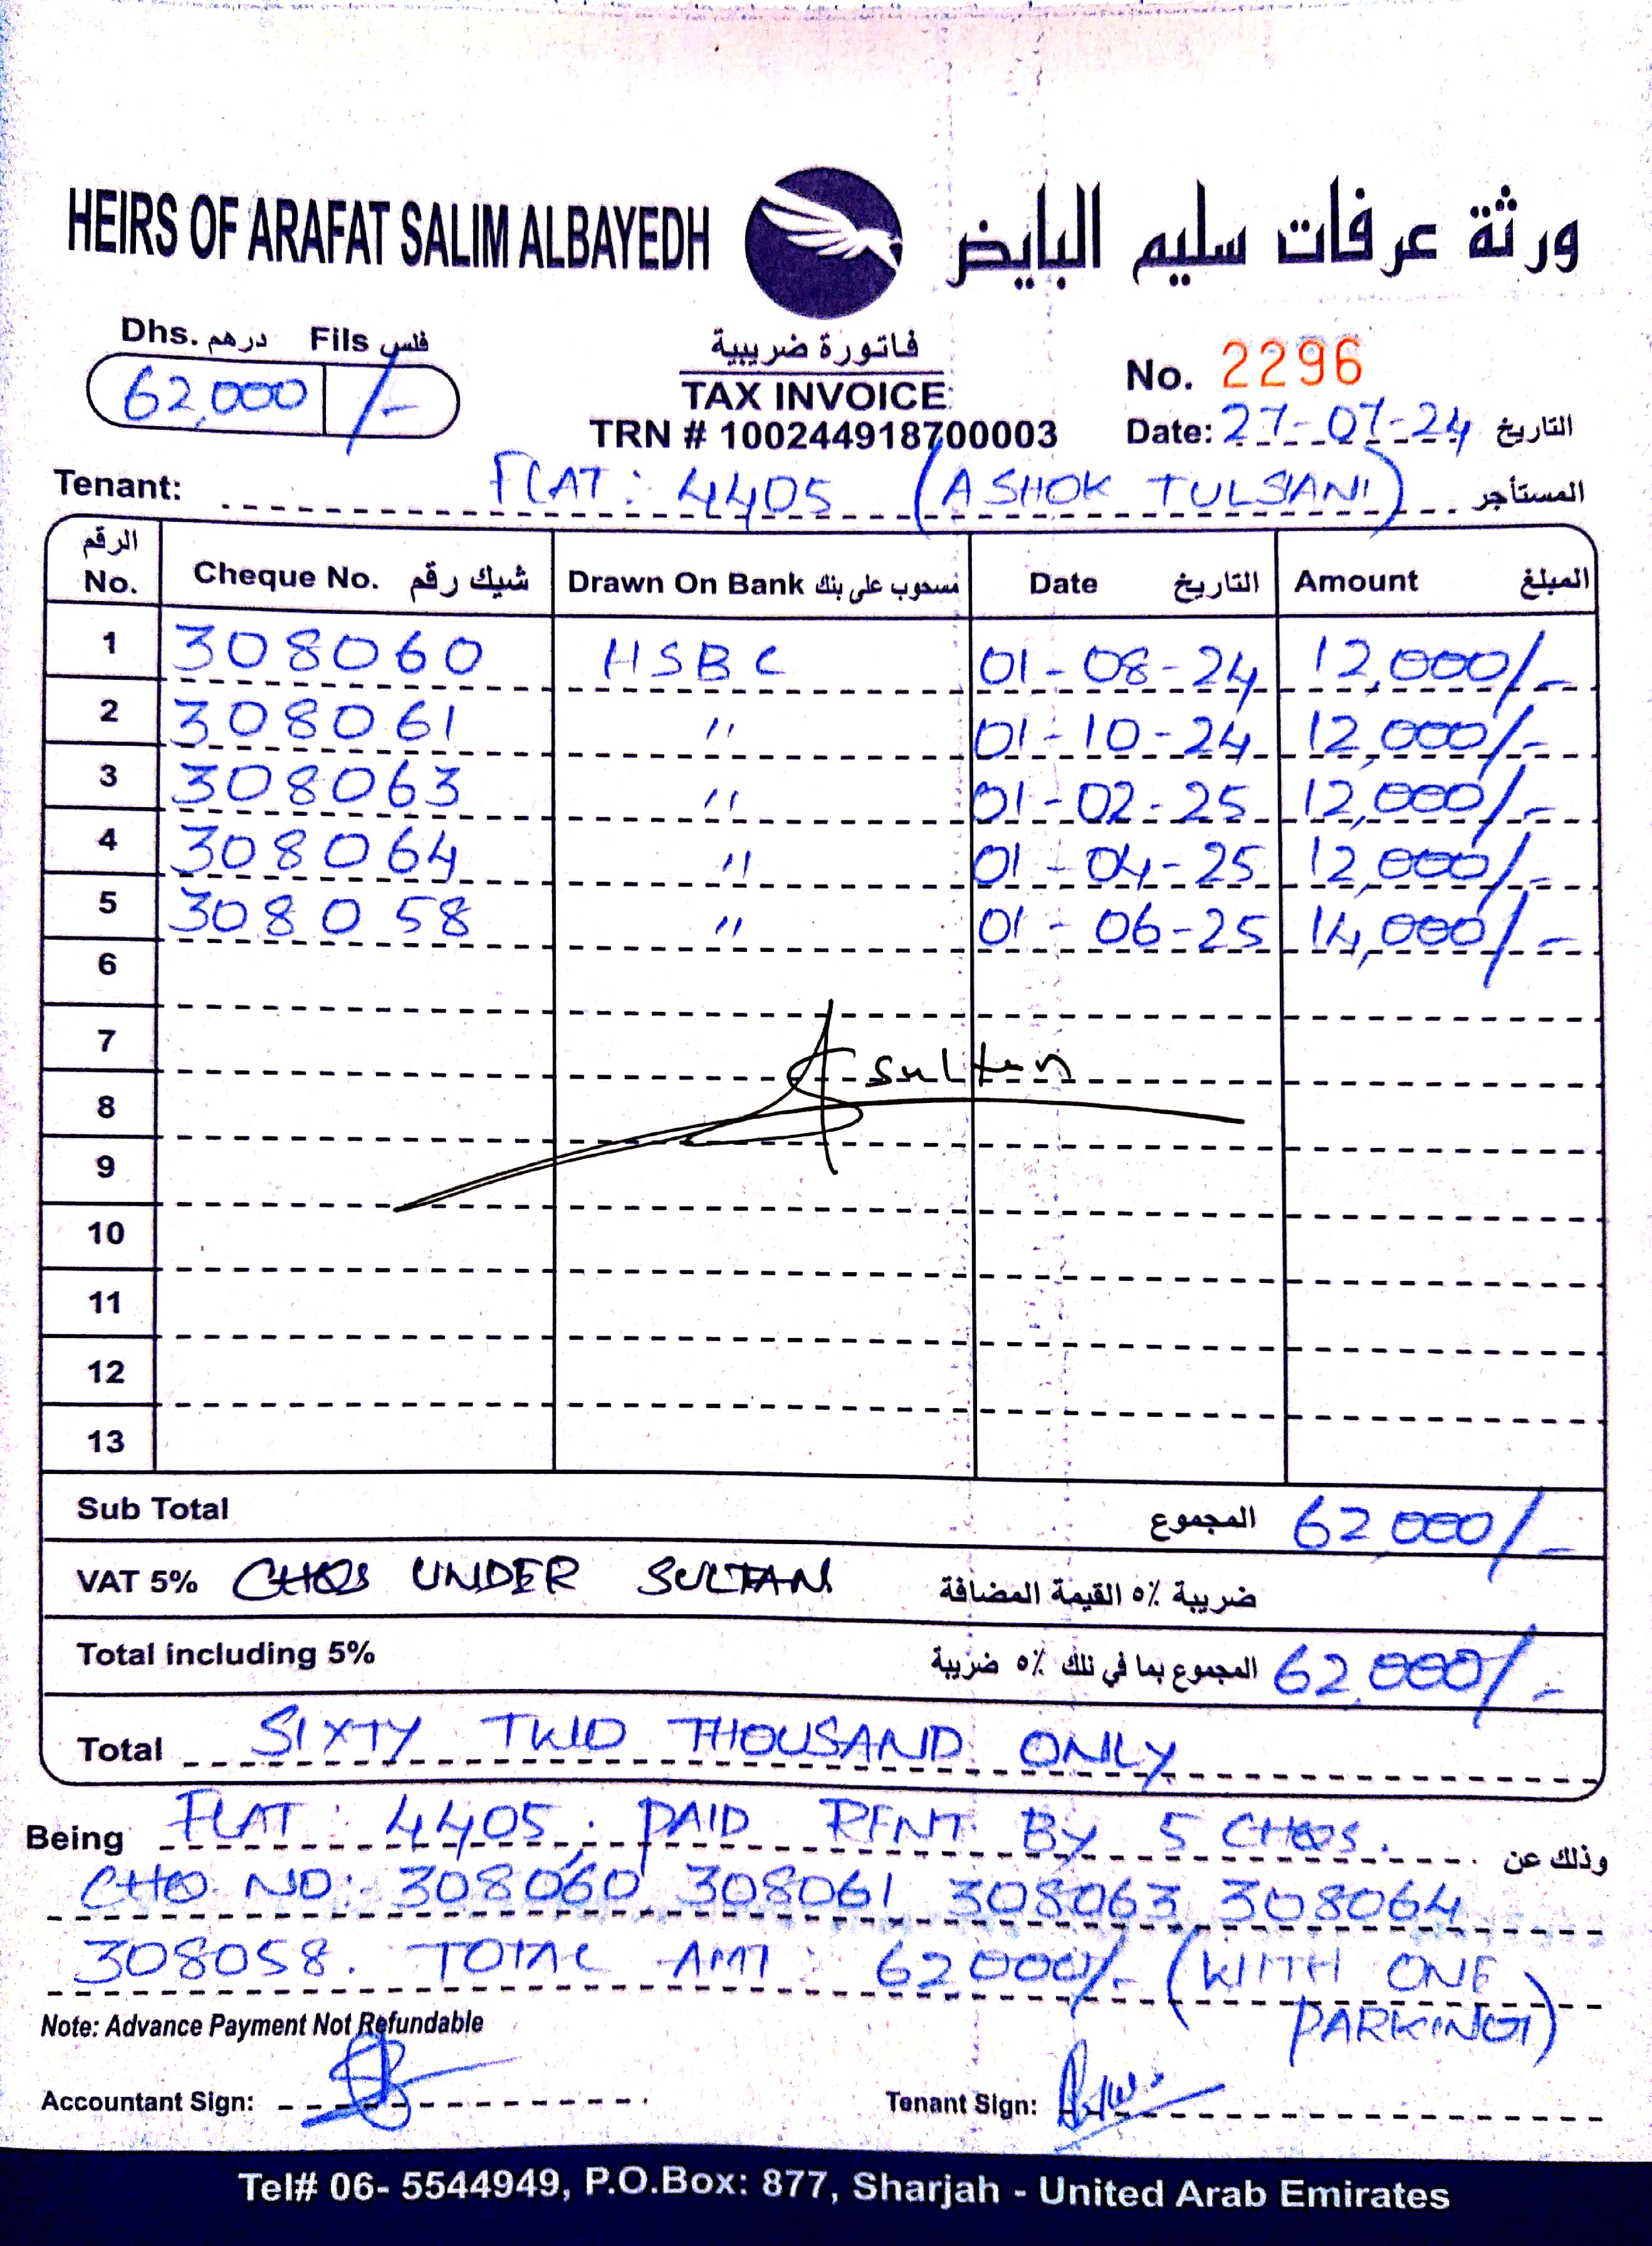 HEIRS OF ARAFAT SALIM ALBAYEDH ورثة عرفات سليم البايض
Dhs. درهم Fils فلس
62,000 /-
فاتورة ضريبية
TAX INVOICE
TRN # 100244918700003
No. 2296
Date: 27-07-24 التاريخ
Tenant: FLAT: 4405 (ASHOK TULSIANI) المستأجر
الرقم No. Cheque No. شيك رقم Drawn On Bank مسحوب على بنك Date التاريخ Amount المبلغ
1 308060 HSBC 01-08-24 12,000/-
2 308061 " 01-10-24 12,000/-
3 308063 " 01-02-25 12,000/-
4 308064 " 01-04-25 12,000/-
5 308058 " 01-06-25 14,000/-
6
7 Sultan
8
9
10
11
12
13
Sub Total المجموع 62,000/-
VAT 5% CHQS UNDER SULTAN ضريبة ٥٪ القيمة المضافة
Total including 5% المجموع بما في ذلك ٥٪ ضريبة 62,000/-
Total SIXTY TWO THOUSAND ONLY
Being FLAT: 4405, PAID RENT BY 5 CHQS. وذلك عن
CHQ NO: 308060 308061 308063 308064
308058. TOTAL AMT: 62000/- (WITH ONE
PARKING)
Note: Advance Payment Not Refundable
Accountant Sign: Tenant Sign:
Tel# 06- 5544949, P.O.Box: 877, Sharjah - United Arab Emirates